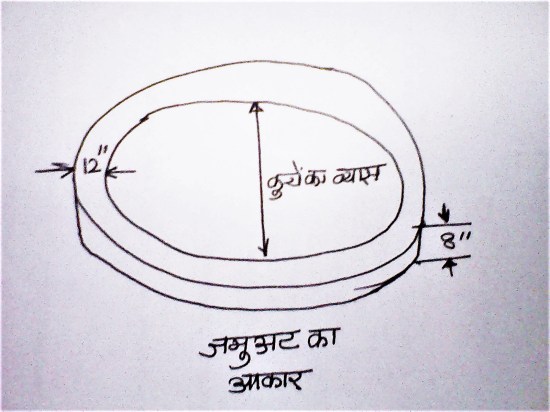 12"
कुएं का व्यास
8"
जमुअट का
आकार